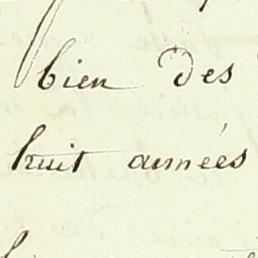 bien des
huit années